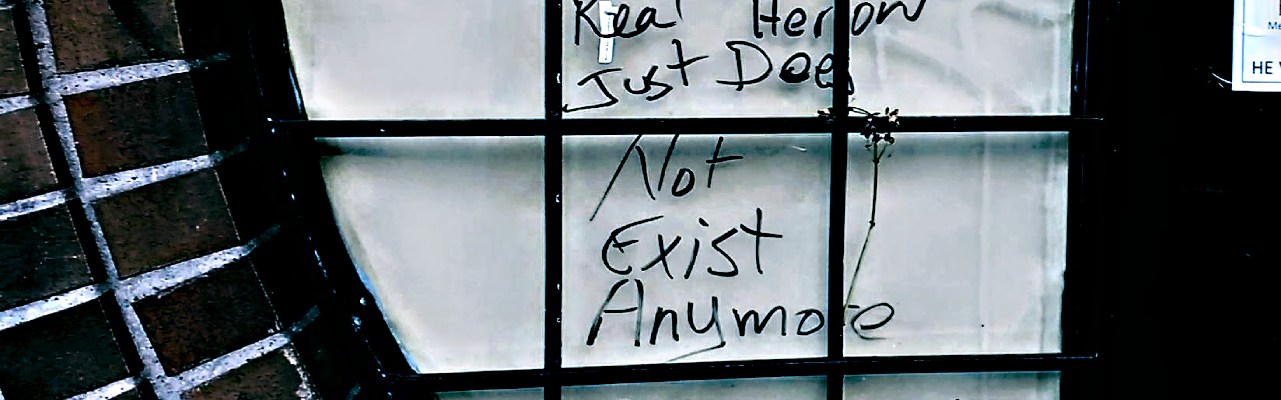 Real Heron
Just Does
Not
Exist
Anymore
HE